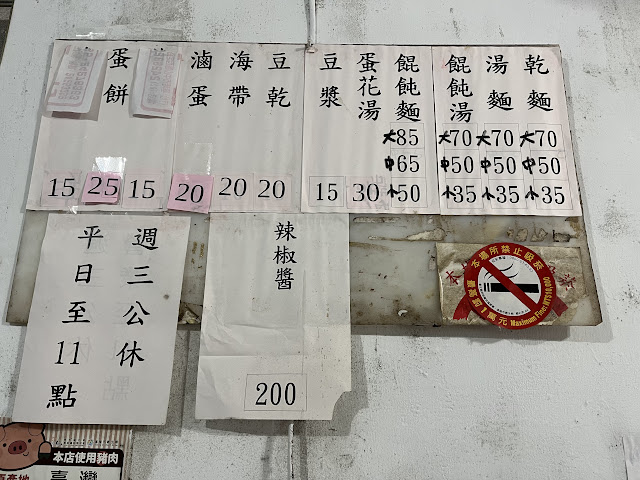 乾麵 大70 中50 小35
湯麵 大70 中50 小35
餛飩湯 大70 中50 小35
餛飩麵 大85 中65 小50
蛋花湯 30
豆漿 15
豆乾 20
海帶 20
滷蛋 20
15
蛋餅 25
15
辣椒醬 200
週三公休
平日至11點
本場所禁止吸菸
最高罰1萬元 Maximum Fine: NT$10,000
本店使用豬肉
原產地
臺灣